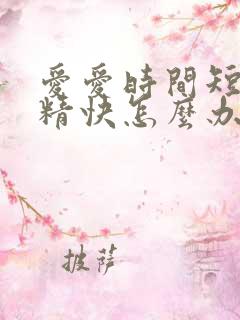 愛愛時間短
精快怎麼办
披萨